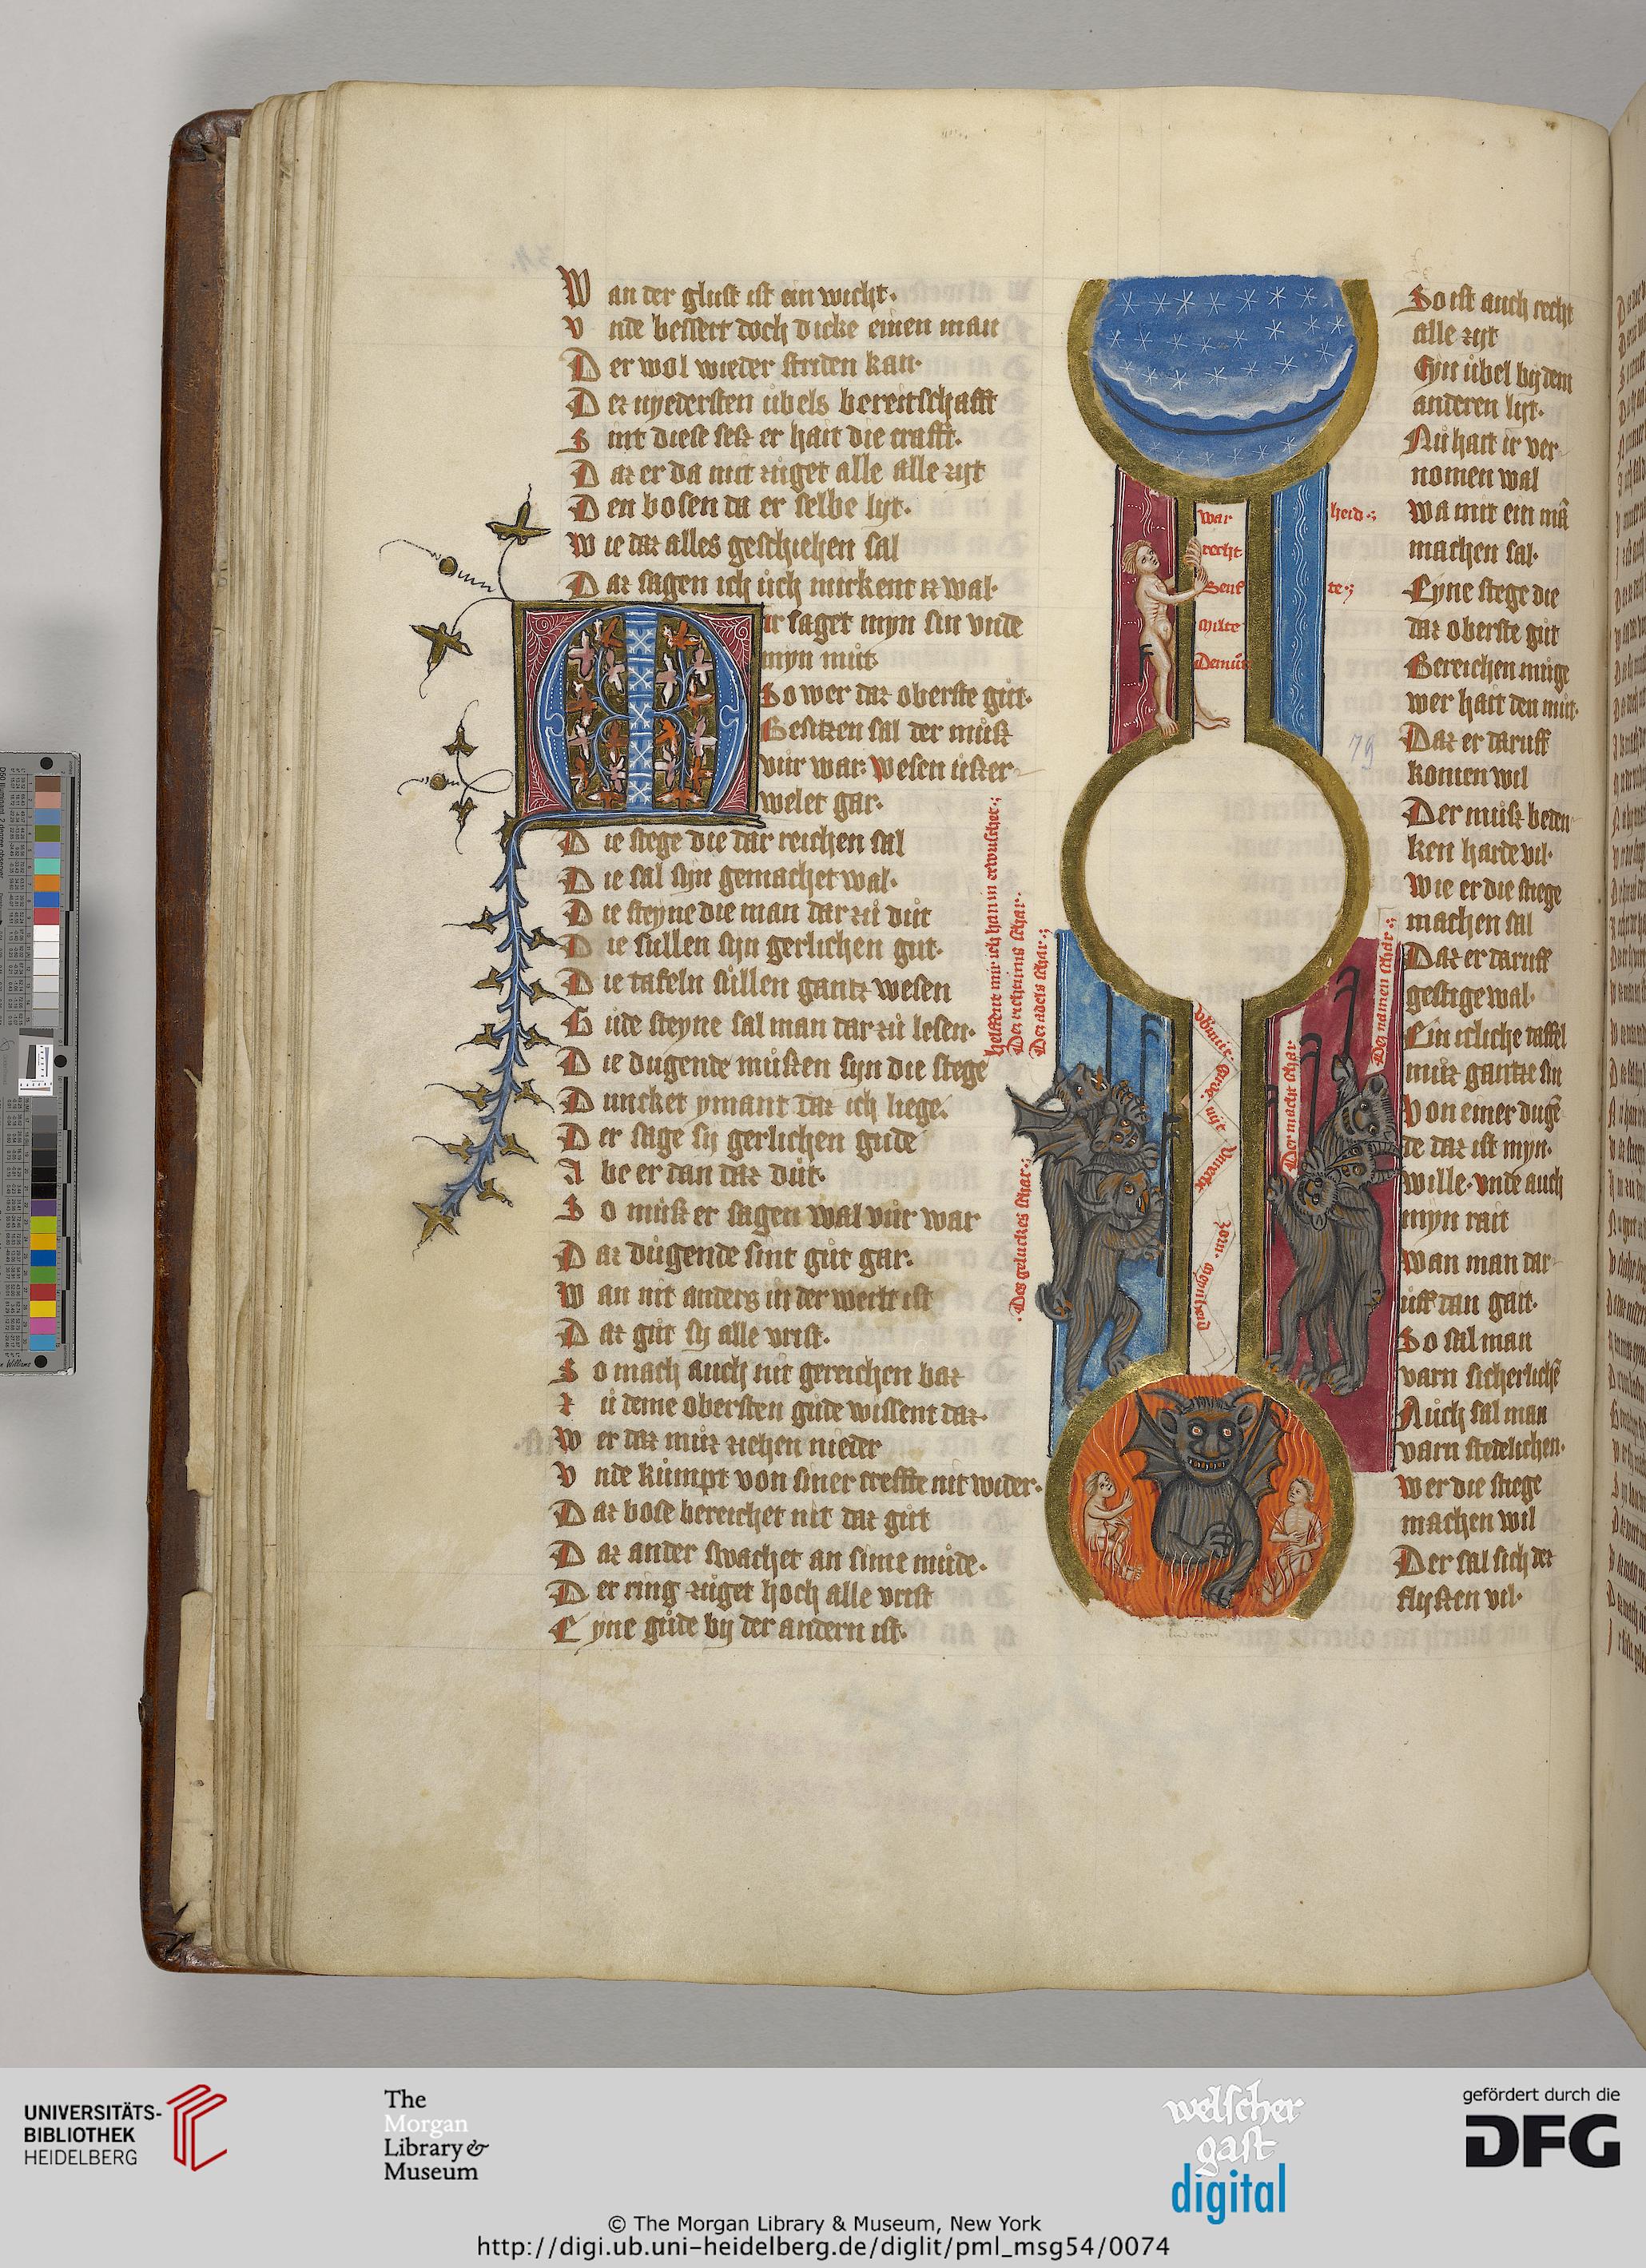 Wan der glust ist ein wicht·
Vnde bessert doch dicke einen man
Der wol wieder striten kan·
Der nyedersten übels bereitschafft
Sint diese seß er hait die crafft·
Daz er da mit zuget alle alle zijt
Den bosen da er selbe lijt·
Wie daz alles geschiehen sal
Daz sagen ich üch mirkent ez wal·
Mir saget myn sin vnde
myn müt
So wer daz oberste güt·
Besitzen sal der müß
vür war· wesen üßer
welet gar·
Die stege die dar reichen sal
Die sal sijn gemachet wal·
Die steyne die man dar zü düt
Die sullen sijn gerlichen gut·
Die tafeln süllen gantz wesen
Güde steyne sal man dar zü lesen·
Die dugende müßen sijn die stege
Duncket ymant daz ich liege·
Der sage sij gerlichen gude
Abe er dan daz düt·
So müß er sagen wal vür war
Daz dügende sint güt gar·
Wan nit anders in der werlt ist
Daz güt sij alle vrist·
So mach auch nit gereichen baz
Zü deme obersten güde wissent daz·
Wer daz müz ziehen nieder
Vnde kümpt von siner treffte nit wider·
Daz bose bereichet nit daz güt
Daz ander swachet an sime müde·
Der ring züget hoch alle vrist
Eyne güde bij der andern ist·
war heid
recht
Senf te
milte
Demüt
helffent mir ich han in erwuschet
Des richtums schar·
Des adels schar
Des geluckes schar
Der macht schar
Des namen schar
79
So ist auch recht
alle zijt
Eyn übel bij dem
anderen lijt·
Nü hait ir ver
nomen wal
wa mit ein mā
machen sal·
Eyne stege die
daz oberste güt
Bereichen müge
wer hait den müt·
Daz er daruff
komen wil
Der müß beden
ken harde vil·
Wie er die stiege
machen sal
Daz er daruff
gestige wal·
Ein icliche taffel
müz gantze sin
Von einer dugē
de daz ist myn·
wille· vnde auch
myn rait
wan man dar
üff dan gait·
So sal man
varn sicherlichē
Auch sal man
varn stedelichen·
Wer die stiege
machen wil
Der sal sich der
flyßen vil·
UNIVERSITÄTS-
BIBLIOTHEK
HEIDELBERG
The
Morgan
Library &
Museum
welscher
gast
digital
gefördert durch die
DFG
© The Morgan Library & Museum, New York
http://digi.ub.uni-heidelberg.de/diglit/pml_msg54/0074